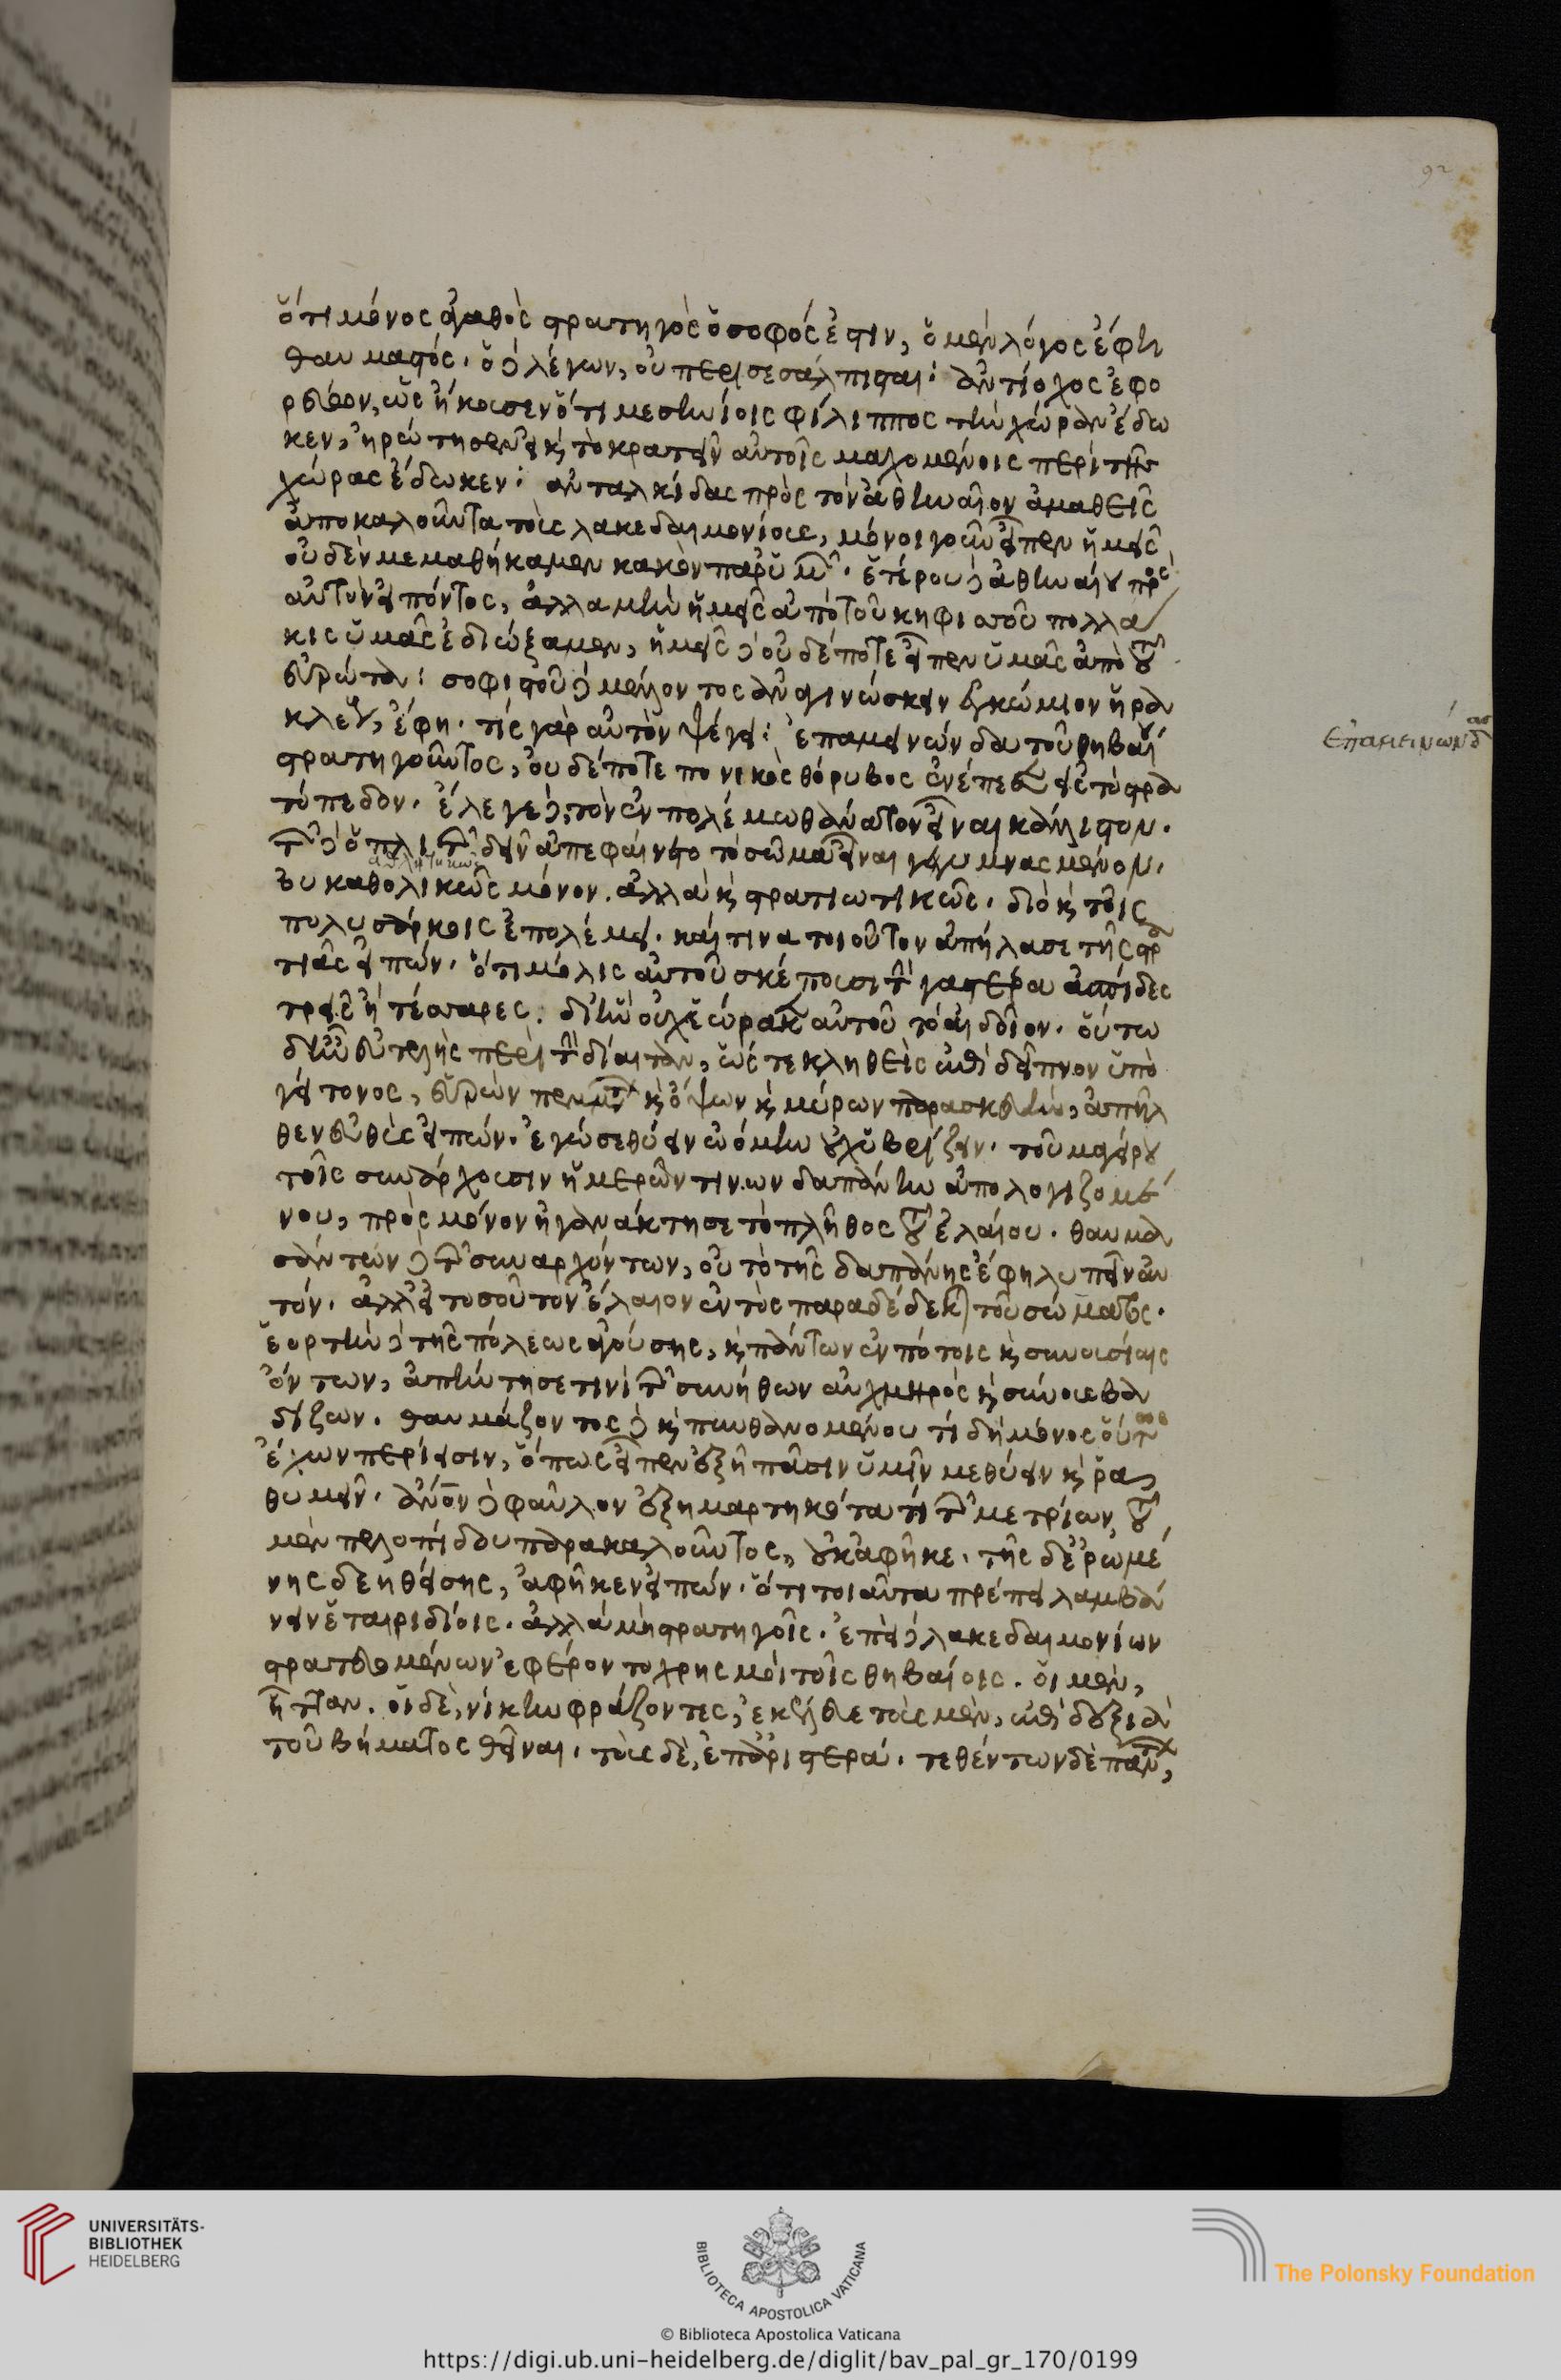 92
ὅτι μόνος ἀγαθὸς στρατηγὸς ὁ σοφός ἐστιν, ὁ μὲν λόγος ἔφη
θαυμαστός. ὁ δὲ λέγων, οὐ περισεσάλπισται· ἀντίοχος ἐφο
ρεύων, ὡς ἤκουσεν ὅτι μεσηνίοις φίλιππος τὴν χώραν ἔδω
κεν, ἠρώτησεν εἰ καὶ τὸ κρατεῖν αὐτοῖς μαχομένοις περὶ τῆς
χώρας ἔδωκεν· ἀνταλκίδας πρὸς τὸν ἀθηναῖον ἀμαθεῖς
ἀποκαλοῦντα τοὺς λακεδαιμονίους, μόνοι γοῦν εἶπεν ἡμεῖς
οὐδὲν μεμαθήκαμεν κακὸν παρ' ὑμῶν. ἑτέρου δὲ ἀθηναίου πρὸς
αὐτὸν εἰπόντος, ἀλλὰ μὴν ἡμεῖς ἀπὸ τοῦ κηφισσοῦ πολλά
κις ὑμᾶς ἐδιώξαμεν, ἡμεῖς δὲ οὐδέποτε εἶπεν ὑμᾶς ἀπὸ τοῦ
εὐρώτα· σοφιστοῦ δὲ μέλλοντος ἀναγινώσκειν ἐγκώμιον ἡρα
κλέους, ἔφη. τίς γὰρ αὐτὸν ψέγει· ἐπαμεινώνδα τοῦ θηβαίου
στρατηγοῦντος, οὐδέποτε πανικὸς θόρυβος ἐνέπεσεν εἰς τὸ στρα
τόπεδον. ἔλεγε δὲ, τὸν ἐν πολέμω θάνατον εἶναι κάλλιστον.
τῶν δὲ ὁπλιτῶν δεῖν ἀπεφαίνετο τὸ σῶμα εἶναι γεγυμνασμένον.
ἀθλητικῶς
οὐ καθολικῶς μόνον. ἀλλὰ καὶ στρατιωτικῶς. διὸ καὶ τοῖς
πολυσάρκοις ἐπολέμει. καί τινα τοιοῦτον ἀπήλασε τῆς στρα
τιᾶς εἰπών. ὅτι μόλις αὐτοῦ σκέπουσι τὴν γαστέρα ἀσπίδες
τρεῖς ἢ τέσσαρες. δι' ἣν οὐχ ἑώρακεν αὐτοῦ τὸ αἰδοῖον. οὕτω
δὲ ἦν εὐτελὴς περὶ τὴν δίαιταν, ὥστε κληθεὶς ἐπὶ δεῖπνον ὑπὸ
γείτονος, εὑρὼν πεμμάτων καὶ ὄψων καὶ μύρων παρασκευὴν, ἀπῆλ
θεν εὐθὺς εἰπών. ἐγώ σε θύειν ὠόμην οὐχ ὑβρίζειν. τοῦ μαγείρου
τοῖς συνάρχουσιν ἡμερῶν τινων δαπάνην ἀπολογιζομέ
νου, πρὸς μόνον ἠγανάκτησε τὸ πλῆθος τοῦ ἐλαίου. θαυμα
σάντων δὲ τῶν συναρχόντων, οὐ τὸ τῆς δαπάνης ἔφη λυπεῖν αὐ
τόν. ἀλλ' εἰ τοσοῦτον ἔλαιον ἐντὸς παραδέδεκται τοῦ σώματος.
ἑορτὴν δὲ τῆς πόλεως ἀγούσης, καὶ πάντων ἐν πότοις καὶ συνουσίαις
ὄντων, ἀπήντησε τινὶ τῶν συνήθων αὐχμηρὸς καὶ σύννους βα
δίζων. θαυμάζοντος δὲ καὶ πυνθανομένου τί δὴ μόνος οὕτως
ἔχων περίεισιν, ὅπως εἶπεν ἐξῆ πᾶσιν ὑμῖν μεθύειν καὶ ῥα
θυμεῖν. ἄνον δὲ φαῦλον ἐξημαρτηκότα τὶ τῶν μετρίων, τοῦ
μὲν πελοπίδου παρακαλοῦντος, οὐκ ἀφῆκε. τῆς δὲ ἐρωμέ
νης δεηθείσης, ἀφῆκεν εἰπών. ὅτι τοιαῦτα πρέπει λαμβά
νειν ἑταιριδίοις. ἀλλὰ μὴ στρατηγοῖς. ἐπεὶ δὲ λακεδαιμονίων
στρατευομένων ἐφέροντο χρησμοὶ τοῖς θηβαίοις. οἱ μὲν,
ἧτταν. οἱ δὲ, νίκην φράζοντες, ἐκέλευε τοὺς μὲν, ἐπὶ δεξιὰ
τοῦ βήματος θεῖναι. τοὺς δὲ, ἐπ' ἀριστερά. τεθέντων δὲ πάντων,
ἐπαμεινώνδας
UNIVERSITÄTS-
BIBLIOTHEK
HEIDELBERG
BIBLIOTECA APOSTOLICA VATICANA
The Polonsky Foundation
© Biblioteca Apostolica Vaticana
https://digi.ub.uni-heidelberg.de/diglit/bav_pal_gr_170/0199